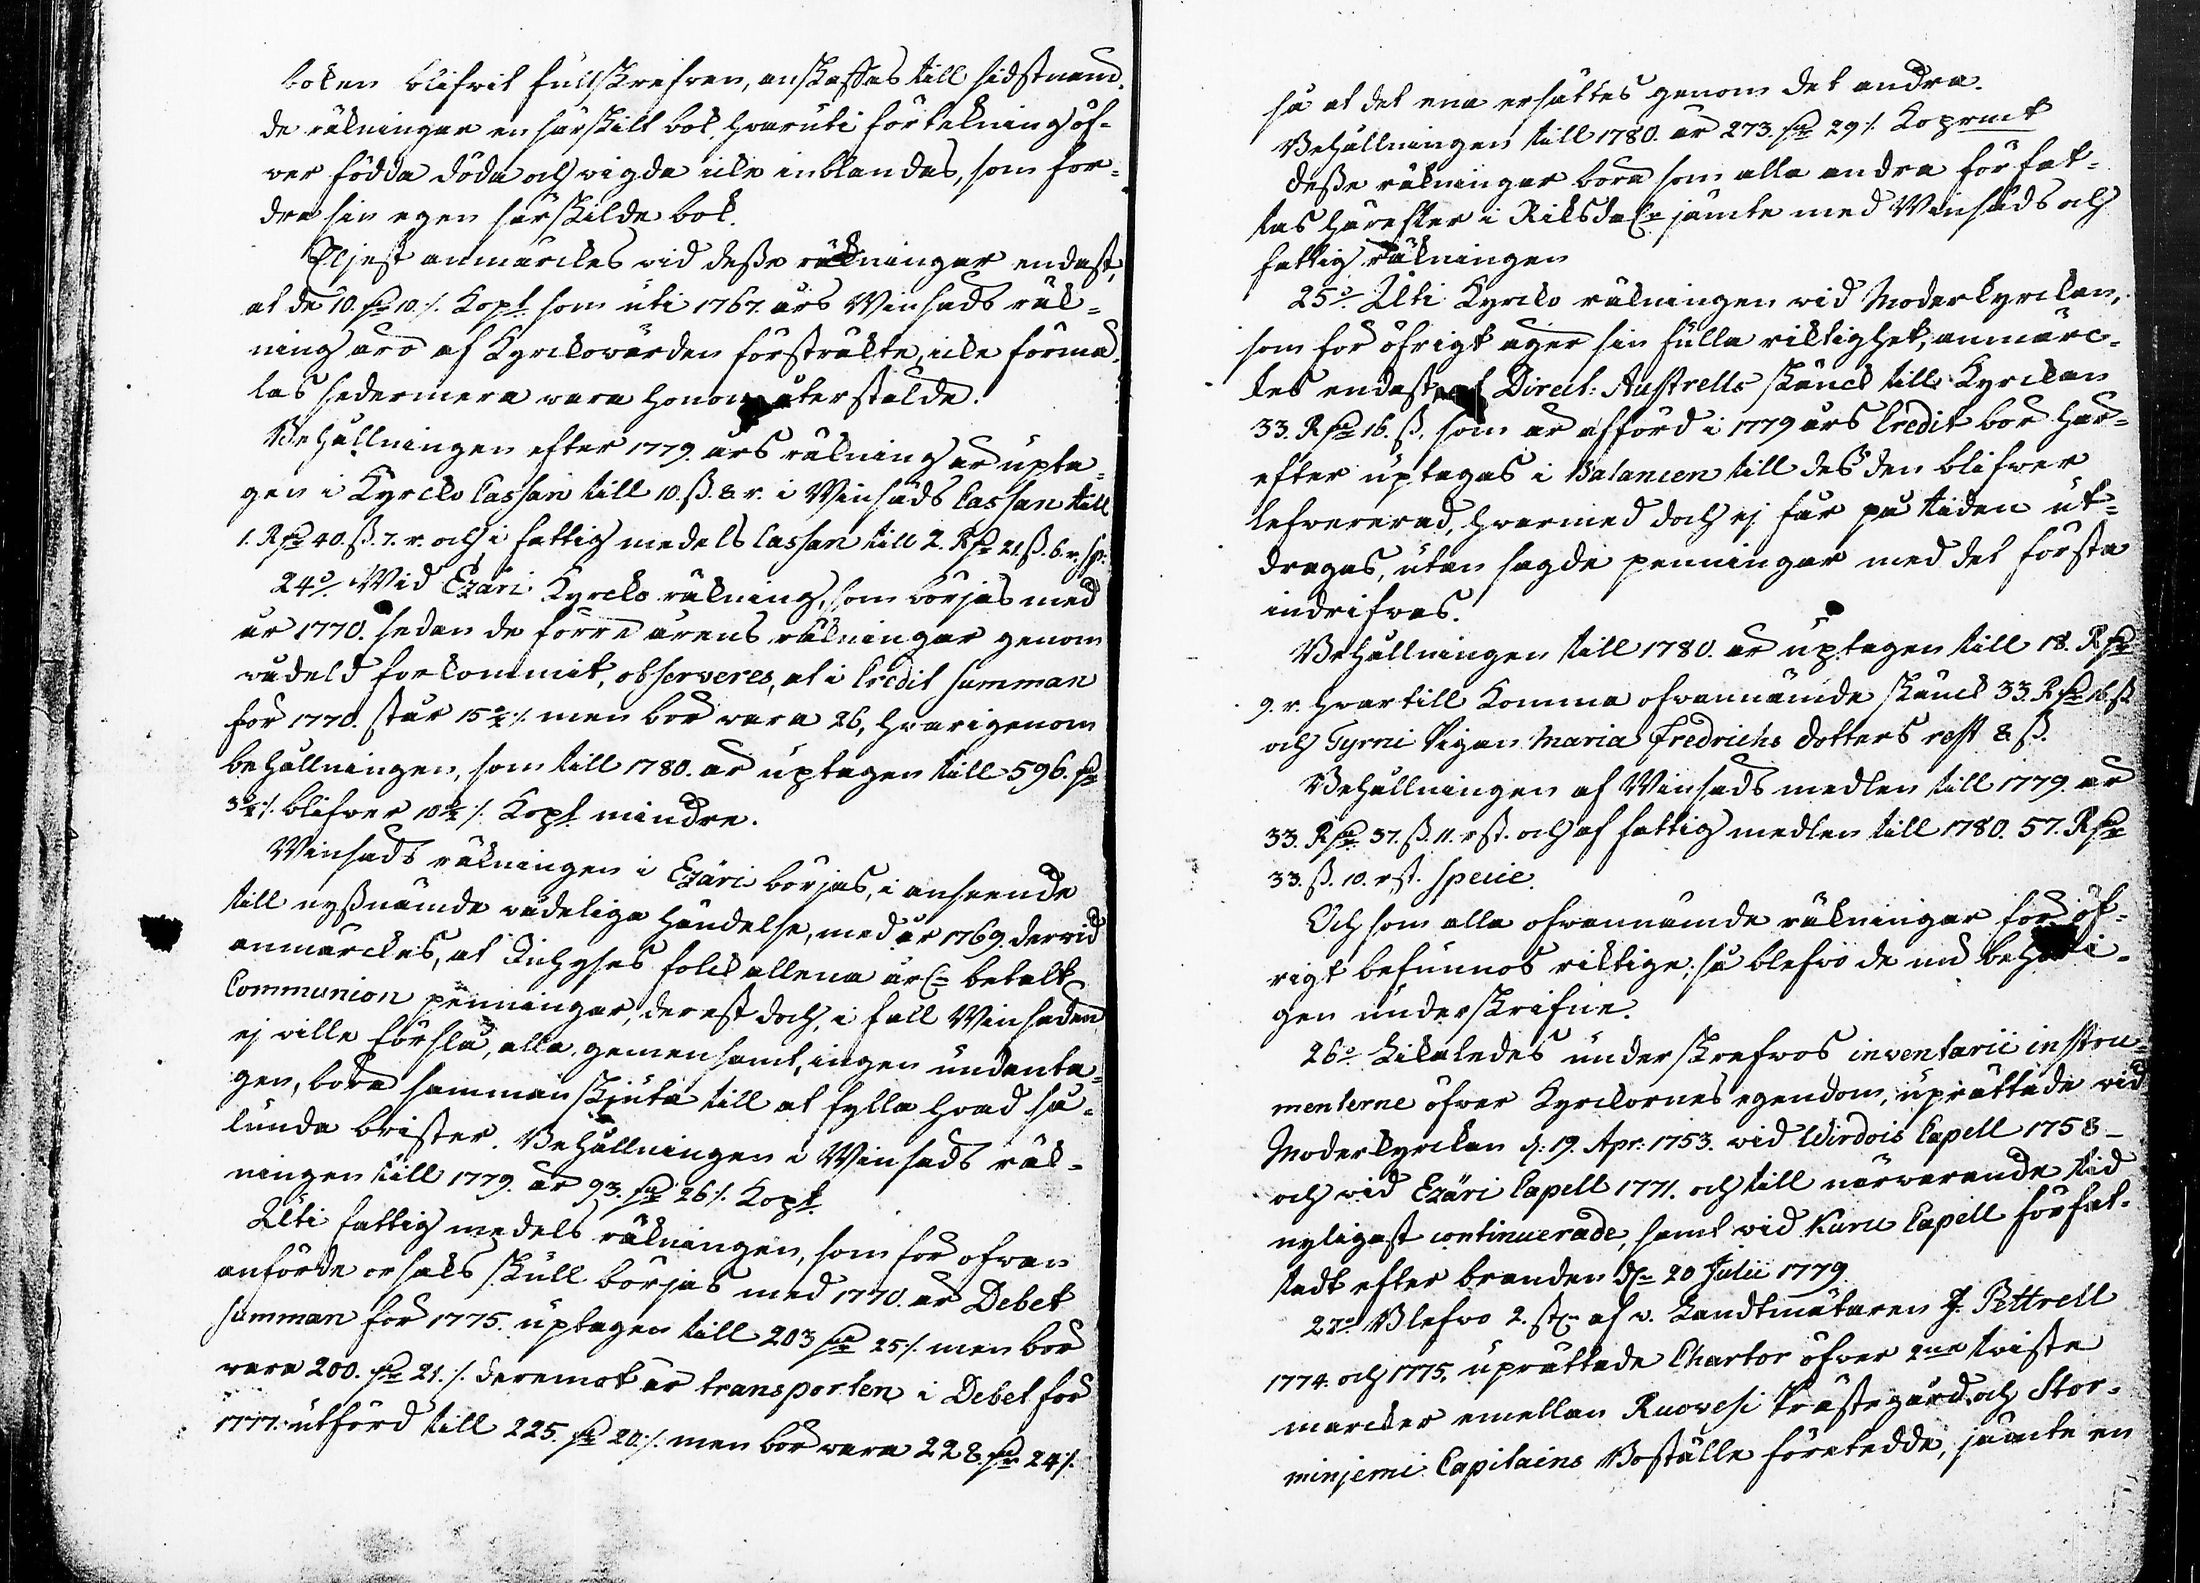 boken blifvit fullskrefven, anskaffas till sidstnämn-
de räkningar en särskilt bok, hvaruti förtekning öf-
ver födda döda och vigda icke inblandas, som for-
dra sin egen särskilde bok.
Eljest anmärckes vid desse räkningar endast,
at de 10. dr 10 /. Kopt som uti 1767 års Winsäds räk-
ning äro af Kyrckovärden försträkte, icke förmä-
las sedermera vara honom återstälde.
Behållningen efter 1779 års räkning är upta-
gen i Kyrcko Cassan till 10. ß. 8 r. i Winsäds Cassan till
1. Rdr 40. ß. 7. r. och i fattig medels Cassan till 2. Rdr 21. ß. 6. r. sp.
24o/. Wid Ezäri Kyrcko räkning, som börjas med
år 1770. sedan de förre årens räkningar genom
vådeld förkommit, observeres, at i Credit summan
för 1770. står 15 2/4 /. men bör vara 26, hvarigenom
behållningen, som till 1780. är uptagen till 596. dr
3 2/4 /. blifver 10 2/4 /. Kopt mindre.
Winsäds räkningen i Ezäri börjas, i anseende
till nyssnämde vådeliga händelse, med år 1769. dervid
anmärckes, at Pichyses folck allena årl. betalt
Communion penningar, derest doch, i fall Winsäden
ej ville förslå, alla gemensamt, ingen undanta-
gen, böra samman skjuta till at fylla hvad så-
lunda brister. Behållningen i Winsäds räk-
ningen till 1779. är 93. dr 26 /. Kopt
Uti fattig medels räkningen, som för ofvan
anförde orsaks skull börjas med 1770. är Debet
summan för 1775. uptagen till 203 dr 25 /. men bör
vara 200. dr 21. /. däremot är transporten i Debet för
1777. utförd till 225. dr 20 /. men bör vara 228. dr 24 /.
så at det ena ersättes genom det andra.
Behållningen till 1780. är 273. dr 29 /. Koprmt
Desse räkningar böra som alla andra förfat-
tas härefter i Riksdaler jämte med Winsäds och
fattig räkningen
25o/. Uti Kyrcko räkningen vid Moderkyrckan,
som för öfrigt äger sin fulla riktighet, anmärc-
tes endast, at Direct: Austrells skänck till Kyrckan
33. Rdr 16. ß. som är afförd i 1779 års Credit bör här-
efter uptagas i Balancen till des den blifver
lefvererad, hvarmed doch ej får på tiden ut-
dragas, utan sagde penningar med det första
indrifvas.
Behållningen till 1780. är uptagen till 18. Rdr
9. r. hvartill komma ofvannämde skänck 33. Rdr 16 ß
och Tyrni Pigan Maria Fredrichs dotters rest 8 ß.
Behållningen af Winsäds medlen till 1779. är
33. Rdr 37. ß. 11. rst. och af fattig medlen till 1780. 57. Rdr
33. ß. 10. rst. Specie.
Och som alla ofvannämde räkningar för öf-
rigt befunnos riktige; så blefvo de nu behöri-
gen underskrifne.
26o/. Likaledes underskrefvos inventarii instru-
menterne öfver Kyrckornes egendom, uprättade vid
Moderkyrckan d. 19. Apr. 1753. vid Wirdois Capell 1758-
och vid Ezäri Capell 1771. och till närvarande tid
nyligast continuerade, samt vid Kuru Capell förfat-
tadt efter branden dn 20 Julii 1779
27o/. Blefvo 2. st. af v. Landtmätaren J. Pettrell
1774. och 1775, uprättade Chartor öfver 2ne tviste
marcker emellan Ruovesi Prästegård, och Stor-
minjemi Capitains Boställe företedde, jämte en